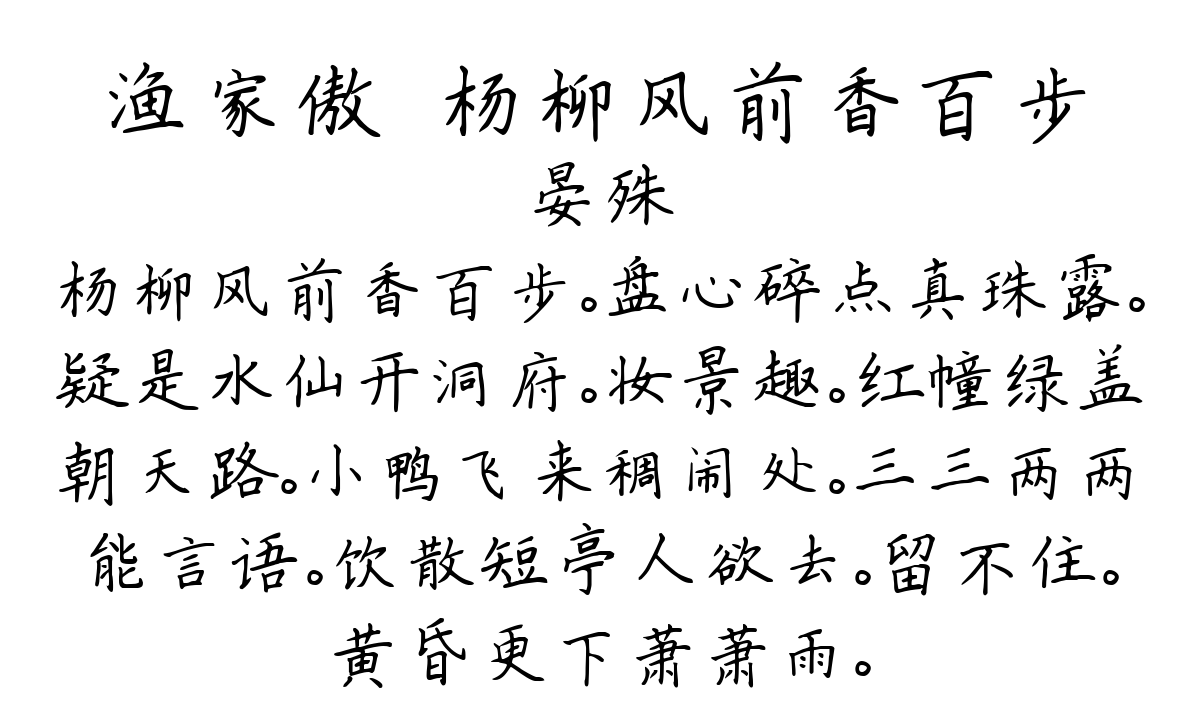 渔家傲 杨柳风前香百步
晏殊
杨柳风前香百步。盘心碎点真珠露。
疑是水仙开洞府。妆景趣。红幢绿盖
朝天路。小鸭飞来稠闹处。三三两两
能言语。饮散短亭人欲去。留不住。
黄昏更下萧萧雨。